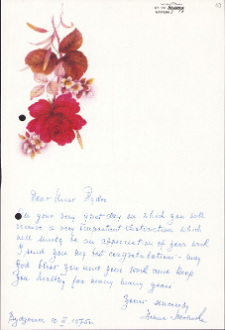 10
Dear
On your very great day on which you will
receive a very important distinction which
will surely be an appreciation of your work
I send you my best congratulations - may
God bless you and your work and keep
you healthy for many many years
Yours sincerely
Bydgoszcz